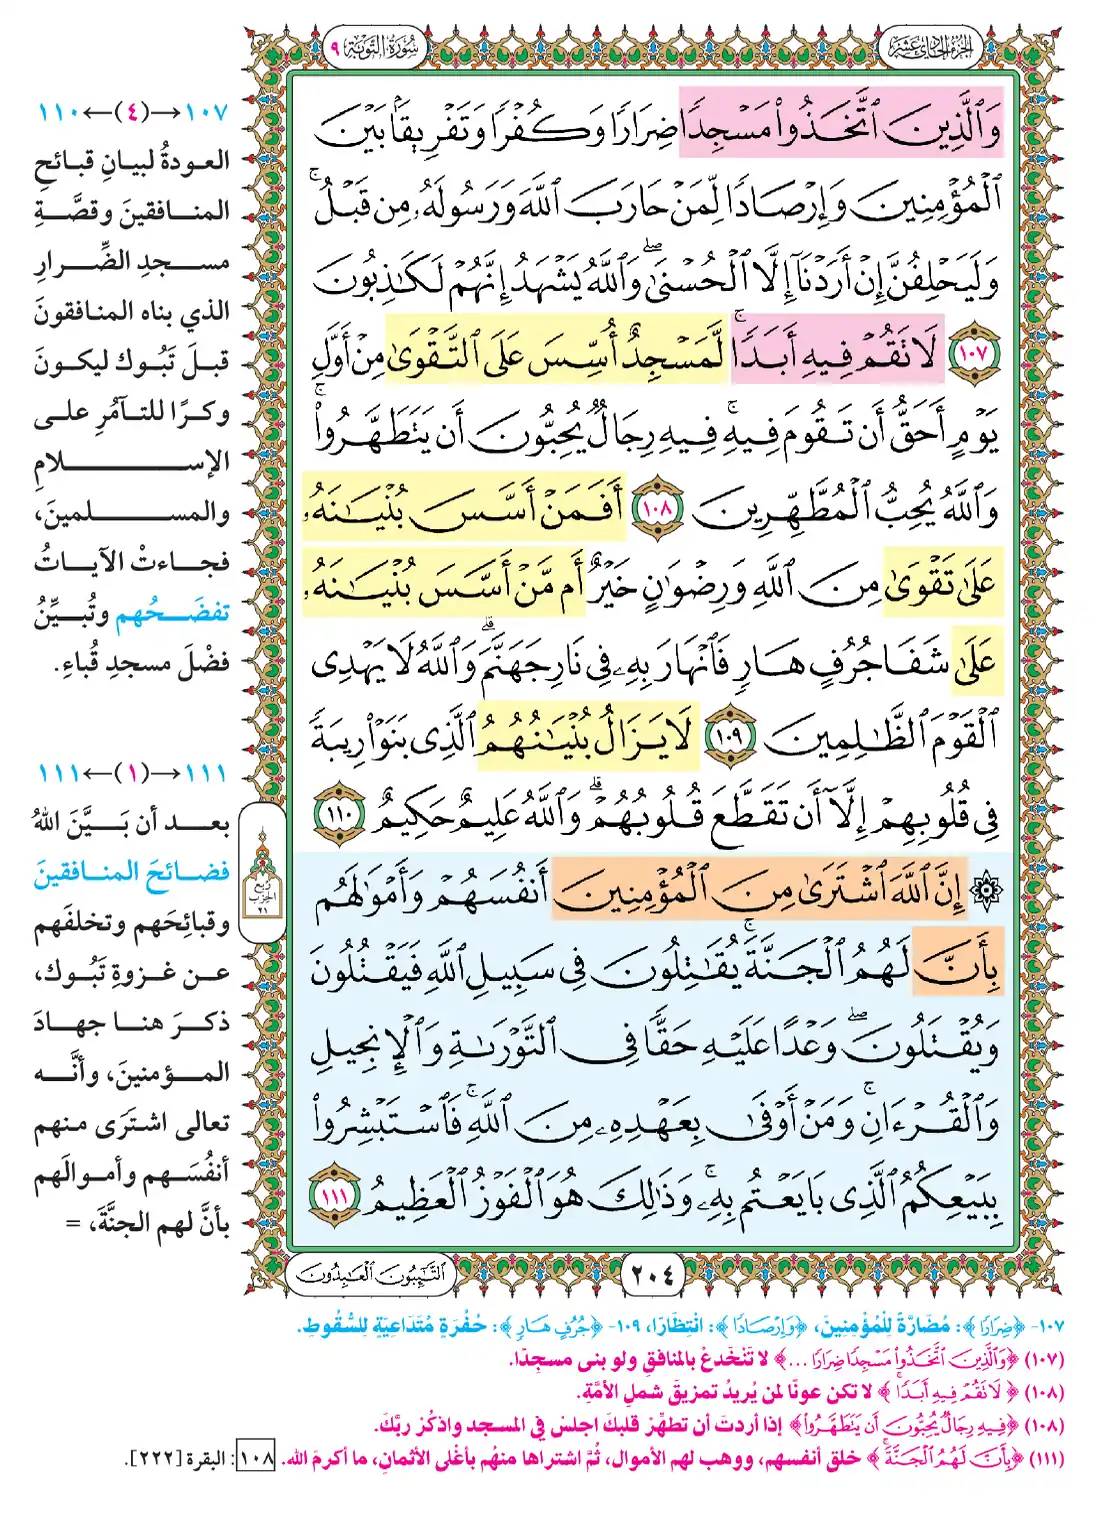 الجزء الحادي عشر
سورة التوبة ٩
وَٱلَّذِينَ ٱتَّخَذُوا۟ مَسْجِدًا ضِرَارًا وَكُفْرًا وَتَفْرِيقًۢا بَيْنَ
ٱلْمُؤْمِنِينَ وَإِرْصَادًا لِّمَنْ حَارَبَ ٱللَّهَ وَرَسُولَهُۥ مِن قَبْلُ ۚ
وَلَيَحْلِفُنَّ إِنْ أَرَدْنَآ إِلَّا ٱلْحُسْنَىٰ ۖ وَٱللَّهُ يَشْهَدُ إِنَّهُمْ لَكَـٰذِبُونَ
١٠٧ لَا تَقُمْ فِيهِ أَبَدًا ۚ لَّمَسْجِدٌ أُسِّسَ عَلَى ٱلتَّقْوَىٰ مِنْ أَوَّلِ
يَوْمٍ أَحَقُّ أَن تَقُومَ فِيهِ ۚ فِيهِ رِجَالٌ يُحِبُّونَ أَن يَتَطَهَّرُوا۟ ۚ
وَٱللَّهُ يُحِبُّ ٱلْمُطَّهِّرِينَ ١٠٨ أَفَمَنْ أَسَّسَ بُنْيَـٰنَهُۥ
عَلَىٰ تَقْوَىٰ مِنَ ٱللَّهِ وَرِضْوَٰنٍ خَيْرٌ أَم مَّنْ أَسَّسَ بُنْيَـٰنَهُۥ
عَلَىٰ شَفَا جُرُفٍ هَارٍ فَٱنْهَارَ بِهِۦ فِى نَارِ جَهَنَّمَ ۗ وَٱللَّهُ لَا يَهْدِى
ٱلْقَوْمَ ٱلظَّـٰلِمِينَ ١٠٩ لَا يَزَالُ بُنْيَـٰنُهُمُ ٱلَّذِى بَنَوْا۟ رِيبَةً
فِى قُلُوبِهِمْ إِلَّآ أَن تَقَطَّعَ قُلُوبُهُمْ ۗ وَٱللَّهُ عَلِيمٌ حَكِيمٌ ١١٠
۞ إِنَّ ٱللَّهَ ٱشْتَرَىٰ مِنَ ٱلْمُؤْمِنِينَ أَنفُسَهُمْ وَأَمْوَٰلَهُم
بِأَنَّ لَهُمُ ٱلْجَنَّةَ ۚ يُقَـٰتِلُونَ فِى سَبِيلِ ٱللَّهِ فَيَقْتُلُونَ
وَيُقْتَلُونَ ۖ وَعْدًا عَلَيْهِ حَقًّا فِى ٱلتَّوْرَىٰةِ وَٱلْإِنجِيلِ
وَٱلْقُرْءَانِ ۚ وَمَنْ أَوْفَىٰ بِعَهْدِهِۦ مِنَ ٱللَّهِ ۚ فَٱسْتَبْشِرُوا۟
بِبَيْعِكُمُ ٱلَّذِى بَايَعْتُم بِهِۦ ۚ وَذَٰلِكَ هُوَ ٱلْفَوْزُ ٱلْعَظِيمُ ١١١
٢٠٤
ٱلتَّـٰٓئِبُونَ ٱلْعَـٰبِدُونَ
١٠٧→(٤)←١١٠
العودةُ لبيانِ قبائحِ
المنافقينَ وقصَّةِ
مسجدِ الضِّرارِ
الذي بناه المنافقونَ
قبلَ تَبُوك ليكونَ
وكرًا للتآمُرِ على
الإسلامِ
والمسلمينَ،
فجاءتْ الآياتُ
تفضَحُهم وتُبيِّنُ
فضْلَ مسجدِ قُباءٍ.
١١١→(١)←١١١
بعد أن بَيَّنَ اللهُ
فضائحَ المنافقينَ
وقبائِحَهم وتخلفَهم
عن غزوةِ تَبُوك،
ذكرَ هنا جهادَ
المؤمنينَ، وأنَّه
تعالى اشترَى منهم
أنفُسَهم وأموالَهم
بأنَّ لهم الجنَّةَ، =
ربع
الحزب
٢١
١٠٧- ﴿ضِرَارًا﴾: مُضَارَّةً لِلْمُؤْمِنِينَ، ﴿وَإِرْصَادًا﴾: انْتِظَارًا، ١٠٩- ﴿جُرُفٍ هَارٍ﴾: حُفْرَةٍ مُتَدَاعِيَةٍ لِلسُّقُوطِ.
(١٠٧) ﴿وَٱلَّذِينَ ٱتَّخَذُوا۟ مَسْجِدًا ضِرَارًا ...﴾ لا تَنْخَدعْ بالمنافقِ ولو بنى مسجدًا.
(١٠٨) ﴿لَا تَقُمْ فِيهِ أَبَدًا ۚ﴾ لا تكن عونًا لمن يُريدُ تمزيقَ شملِ الأمَّةِ.
(١٠٨) ﴿فِيهِ رِجَالٌ يُحِبُّونَ أَن يَتَطَهَّرُوا۟﴾ إذا أردتَ أن تطهِّرَ قلبكَ اجلسْ في المسجد واذكُر ربَّكَ.
(١١١) ﴿بِأَنَّ لَهُمُ ٱلْجَنَّةَ ۚ﴾ خلق أنفسهم، ووهب لهم الأموال، ثُمَّ اشتراها منهُم بأغْلى الأثمانِ، ما أكرمَ الله. ١٠٨: البقرة [٢٢٢].